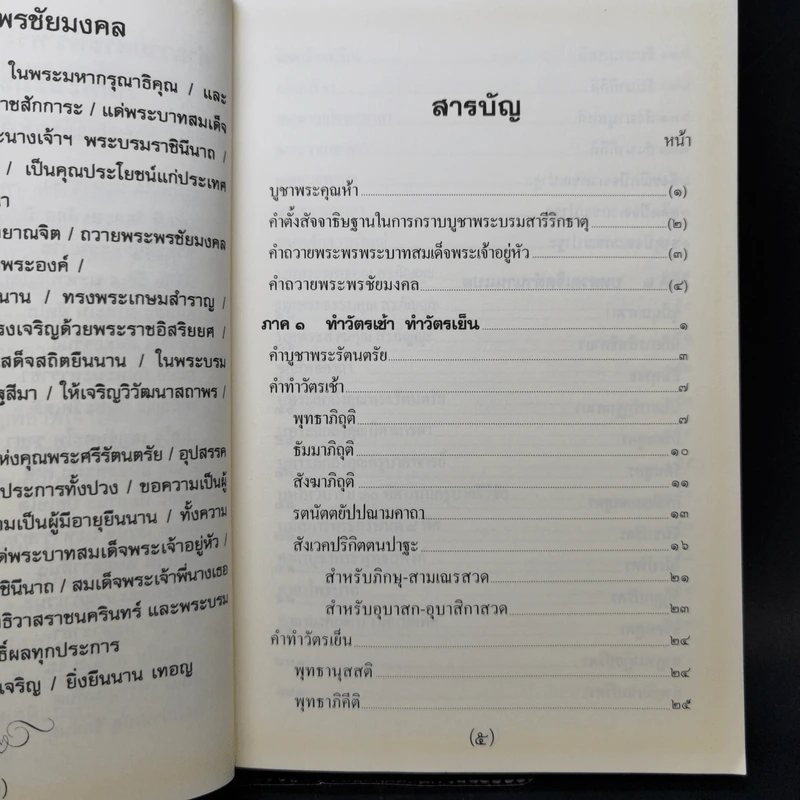 พรชัยมงคล
ในพระมหากรุณาธิคุณ / และ
ราชสักการะ / แด่พระบาทสมเด็จ
ะนางเจ้าฯ พระบรมราชินีนาถ /
/ เป็นคุณประโยชน์แก่ประเทศ
ยาณจิต / ถวายพระพรชัยมงคล
พระองค์ /
นาน / ทรงพระเกษมสำราญ /
รงเจริญด้วยพระราชอิสริยยศ /
สด็จสถิตยืนนาน / ในพระบรม
ฐสีมา / ให้เจริญวิวัฒนาสถาพร /
ห่งคุณพระศรีรัตนตรัย / อุปสรรค
ประการทั้งปวง / ขอความเป็นผู้
ามเป็นผู้มีอายุยืนนาน / ทั้งความ
ด่พระบาทสมเด็จพระเจ้าอยู่หัว /
ชินีนาถ / สมเด็จพระเจ้าพี่นางเธอ
ธิวาสราชนครินทร์ และพระบรม
ธิ์ผลทุกประการ
เจริญ / ยิ่งยืนนาน เทอญ
สารบัญ
หน้า
บูชาพระคุณห้า (๑)
คำตั้งสัจจาธิษฐานในการกราบบูชาพระบรมสารีริกธาตุ (๒)
คำถวายพระพรพระบาทสมเด็จพระเจ้าอยู่หัว (๓)
คำถวายพระพรชัยมงคล (๔)
ภาค ๑ ทำวัตรเช้า ทำวัตรเย็น ๑
คำบูชาพระรัตนตรัย ๓
คำทำวัตรเช้า ๗
พุทธาภิถุติ ๗
ธัมมาภิถุติ ๑๐
สังฆาภิถุติ ๑๑
รตนัตตยัปปณามคาถา ๑๓
สังเวคปริกิตตนปาฐะ ๑๖
สำหรับภิกษุ-สามเณรสวด ๒๑
สำหรับอุบาสก-อุบาสิกาสวด ๒๓
คำทำวัตรเย็น ๒๔
พุทธานุสสติ ๒๔
พุทธาภิคีติ ๒๕
(๕)